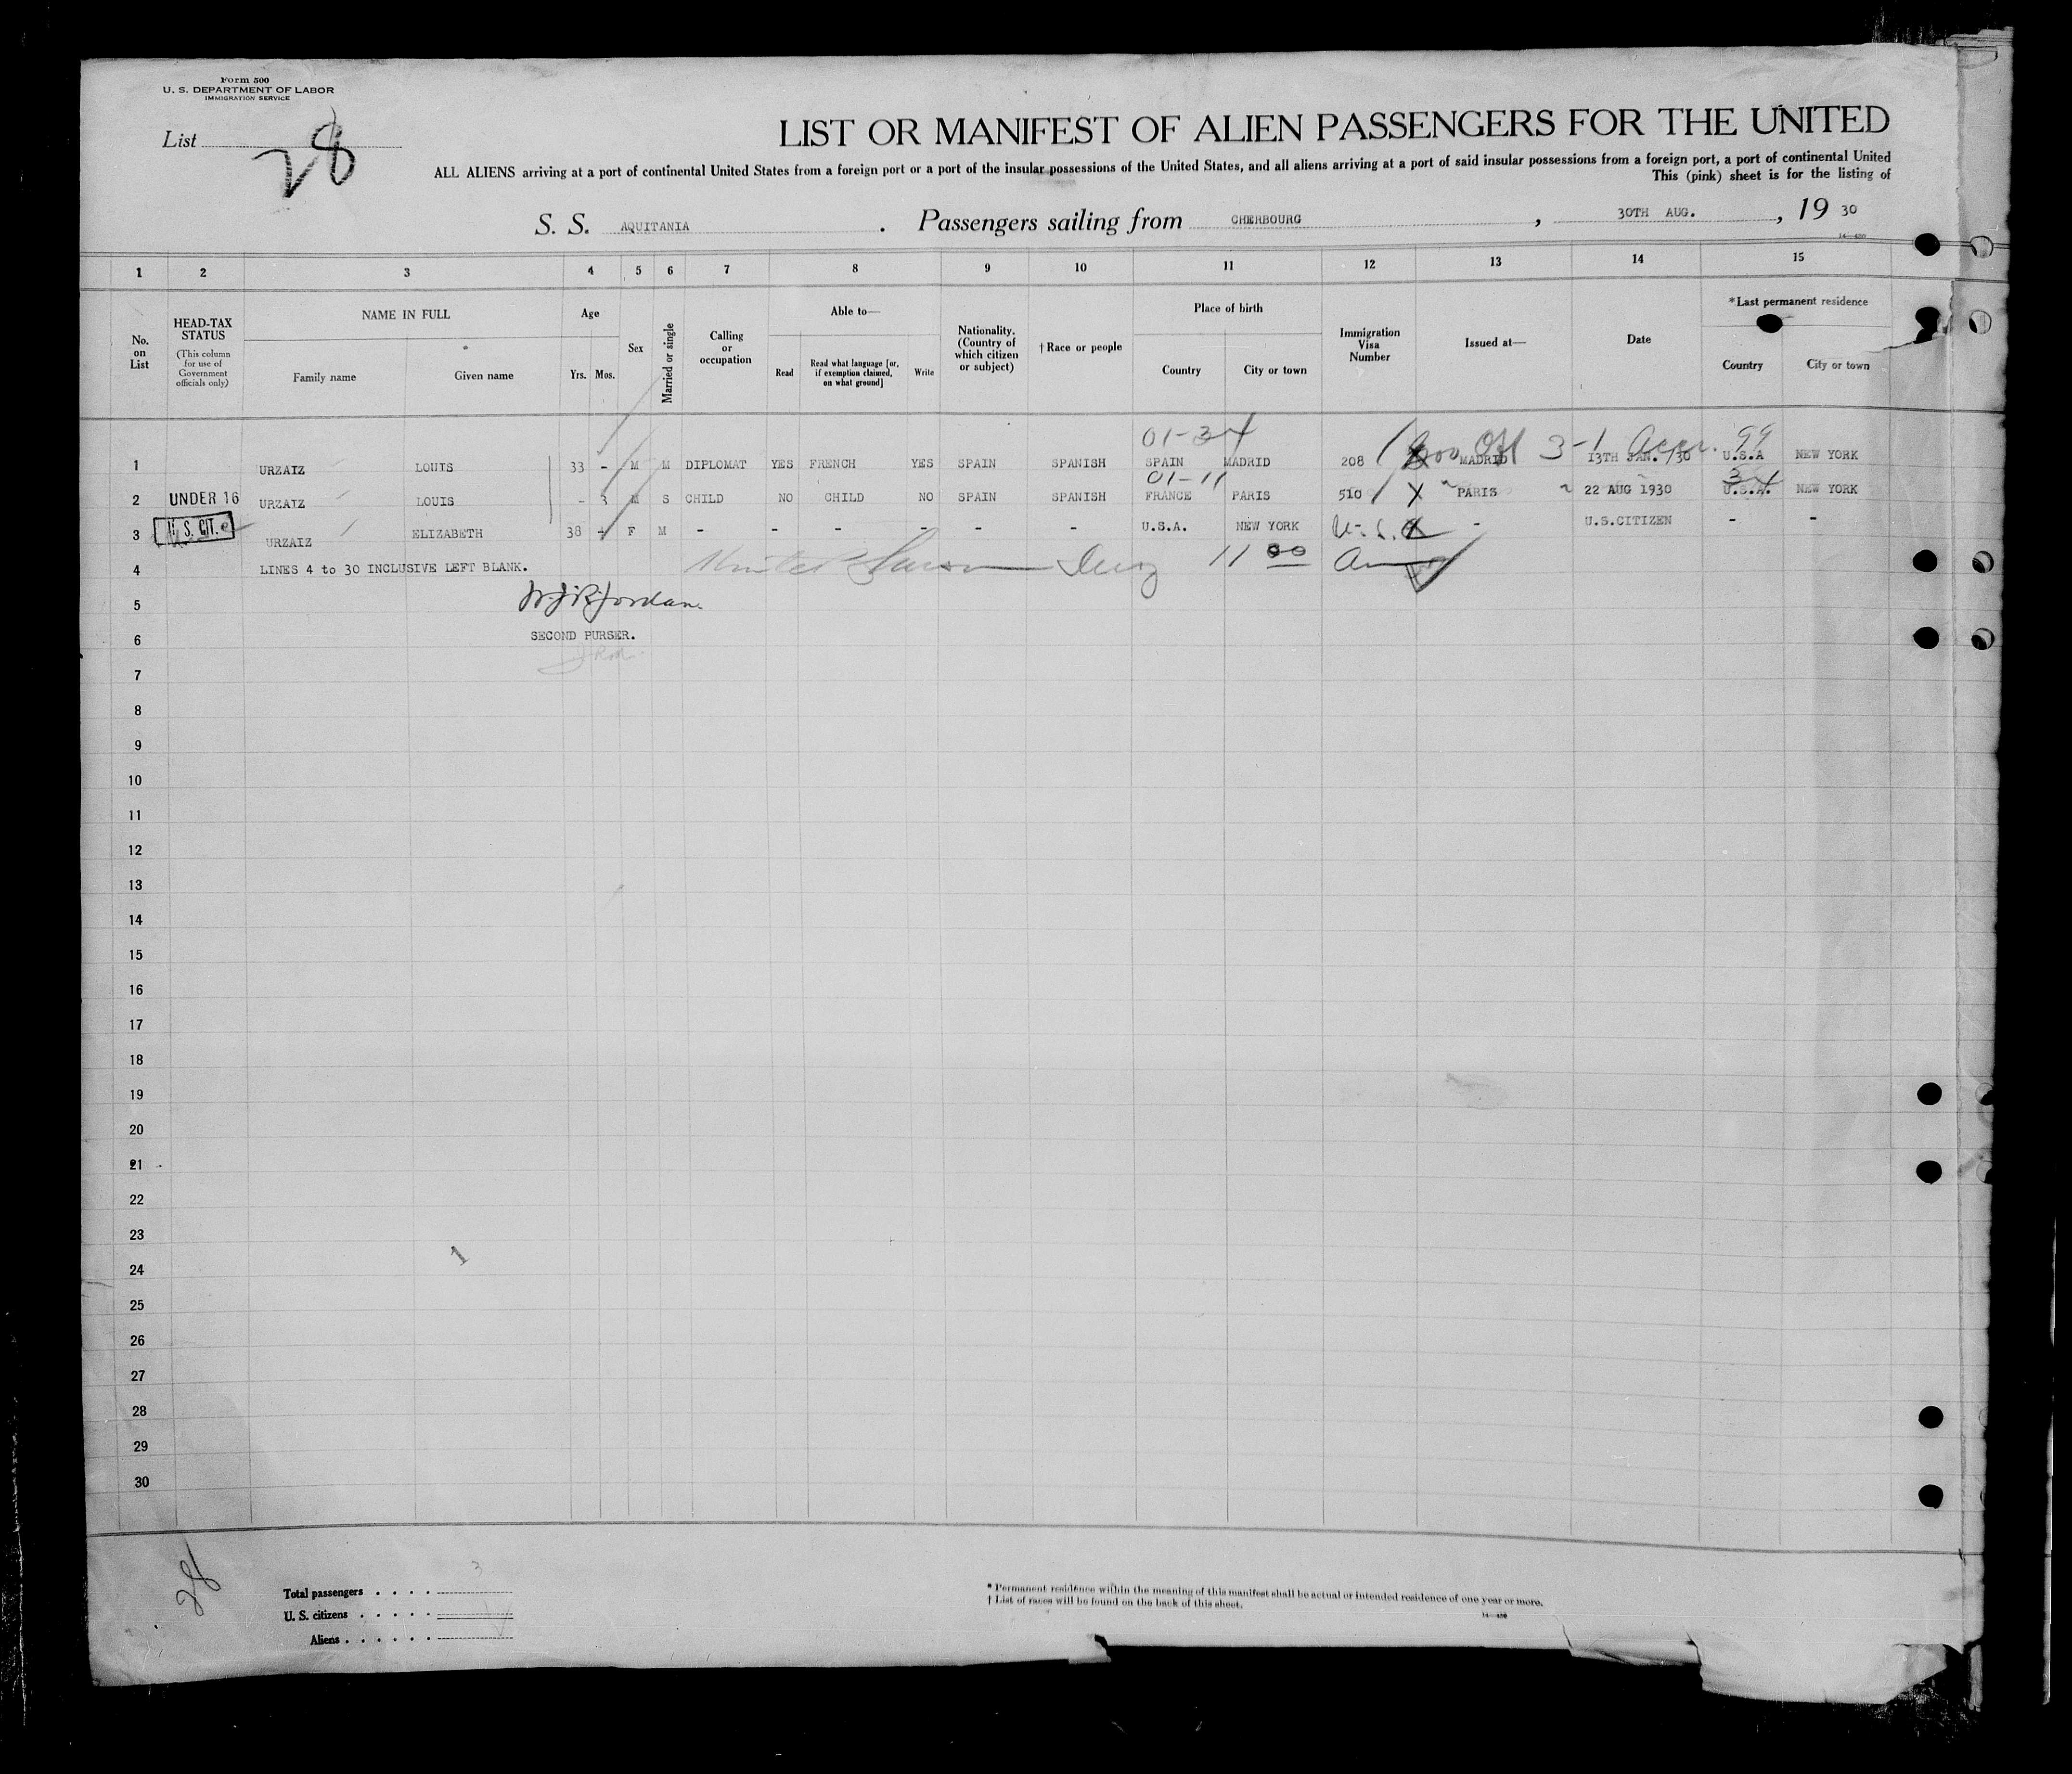 Form 500
U. S. DEPARTMENT OF LABOR
IMMIGRATION SERVICE
List 28
LIST OR MANIFEST OF ALIEN PASSENGERS FOR THE UNITED
ALL ALIENS arriving at a port of continental United States from a foreign port or a port of the insular possessions of the United States, and all aliens arriving at a port of said insular possessions from a foreign port, a port of continental United
This (pink) sheet is for the listing of
S. S. AQUITANIA . Passengers sailing from CHERBOURG , 30TH AUG. , 19 30
1 2 3 4 5 6 7 8 9 10 11 12 13 14 15
No. on List
HEAD-TAX STATUS
(This column for use of Government officials only)
NAME IN FULL
Family name
Given name
Age
Yrs. Mos.
Sex
Married or single
Calling or occupation
Able to—
Read
Read what language [or, if exemption claimed, on what ground]
Write
Nationality. (Country of which citizen or subject)
†Race or people
Place of birth
Country
City or town
Immigration Visa Number
Issued at—
Date
*Last permanent residence
Country
City or town
01-34 3-1 99
1 URZAIZ LOUIS 33 - M M DIPLOMAT YES FRENCH YES SPAIN SPANISH SPAIN MADRID 208 MADRID 13TH JAN. /30 U.S.A NEW YORK
01-11
2 UNDER 16 URZAIZ LOUIS - 3 M S CHILD NO CHILD NO SPAIN SPANISH FRANCE PARIS 510 X PARIS 22 AUG 1930 U.S.A. NEW YORK
3 U. S. CIT. URZAIZ ELIZABETH 38 - F M - - - - - - U.S.A. NEW YORK U.S. - U.S.CITIZEN - -
4 LINES 4 to 30 INCLUSIVE LEFT BLANK. 11 00
5 Jordan
6 SECOND PURSER.
7
8
9
10
11
12
13
14
15
16
17
18
19
20
21
22
23
24
25
26
27
28
29
30
28
Total passengers . . . . 3
U. S. citizens . . . . .
Aliens . . . . . .
* Permanent residence within the meaning of this manifest shall be actual or intended residence of one year or more.
† List of races will be found on the back of this sheet.